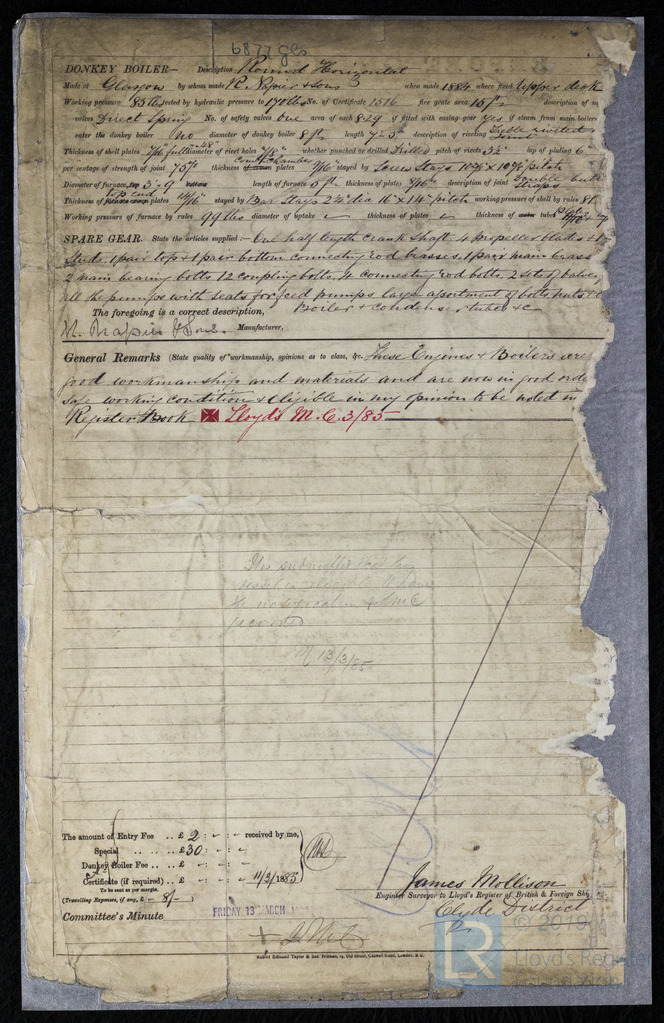 6877 Gls
DONKEY BOILER— Description Round Horizontal
Made at Glasgow by whom made R. Napier & Sons when made 1884 where fixed Upper deck
Working pressure 85 lbs tested by hydraulic pressure to 170 lbs No. of Certificate 1516 fire grate area 15 ft description of
valves Direct Spring No. of safety valves one area of each 8.29 if fitted with easing-gear yes if steam from main boilers
enter the donkey boiler No diameter of donkey boiler 8 ft length 7-3 description of riveting Treble riveted
Thickness of shell plates 7/16 full diameter of rivet holes whether punched or drilled Drilled pitch of rivets 3½ lap of plating 6
per centage of strength of joint 75% thickness of Comb. Chamber plates 9/16 stayed by Screw Stays pitch
Diameter of furnace, 3-9 length of furnace 5 ft thickness of plates 7/16 description of joint Double butt Straps
Thickness of top end plates 11/16 stayed by Bar Stays 2½ dia 16 x 14 pitch working pressure of shell by rules 86
Working pressure of furnace by rules 99 lbs diameter of uptake thickness of plates thickness of tubes
SPARE GEAR. State the articles supplied:— One half length crank shaft 4 propeller blades &
Studs 1 pair top & 1 pair bottom connecting rod brasses, 1 pair main brass
2 main bearing bolts 12 coupling bolts, 4 connecting rod bolts 2 sets of valves
all the pumps with seats for feed pumps large of bolts nuts &c
The foregoing is a correct description, Boiler & condenser tubes &c
R. Napier & Sons. Manufacturer.
General Remarks (State quality of workmanship, opinions as to class, &c. These Engines & Boilers are
good workmanship and materials and are now in good order
safe working condition & eligible in my opinion to be noted in
Register Book Lloyds M.C. 3/85
It is submitted that this
vessel is eligible to have
the notification + LMC
recorded
13/3/85
The amount of Entry Fee .. £ 2 : - : - received by me,
Special .. .. £ 30 : - : -
Donkey Boiler Fee .. £ - : - : -
Certificate (if required) .. £ - : - : - 11/3/1885
To be sent as per margin.
(Travelling Expenses, if any, £ - 8/- )
James Mollison
Engineer Surveyor to Lloyd's Register of British & Foreign Ship
Clyde District
Committee's Minute
FRIDAY 13 MARCH
+ LMC
Robert Edmund Taylor & Son Printers, 19, Old Street, Goswell Road, London, E.C.
LR © 2019
Lloyd's Register
Foundation